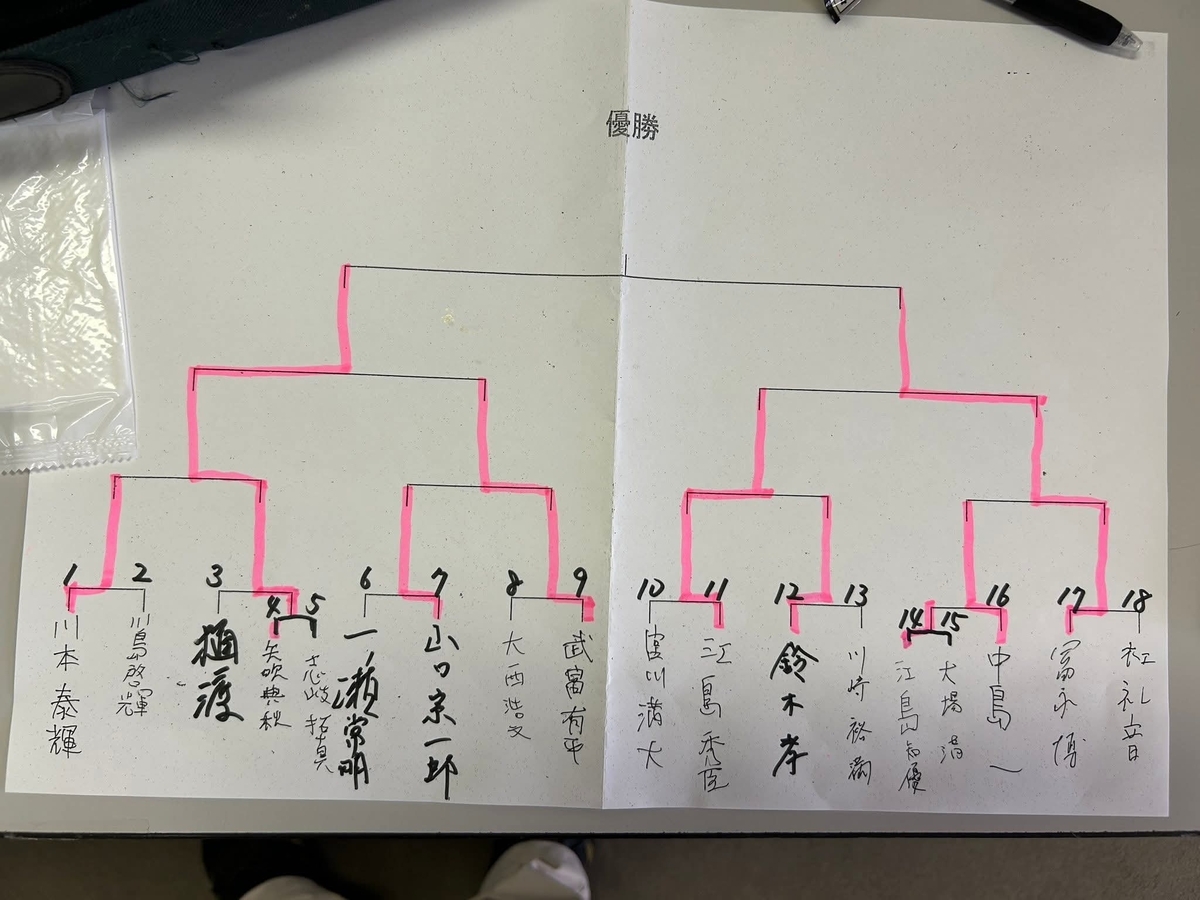 優勝
1 2 3 4 5 6 7 8 9 10 11 12 13 14 15 16 17 18
川本泰輝
川島啓輝
植渡
矢吹典秋
志岐拓真
一ノ瀬常明
山口宗一郎
大西浩文
武富有平
江島秀臣
鈴木孝
川崎裕
江島知優
大場浩
中島一
冨永博
礼音